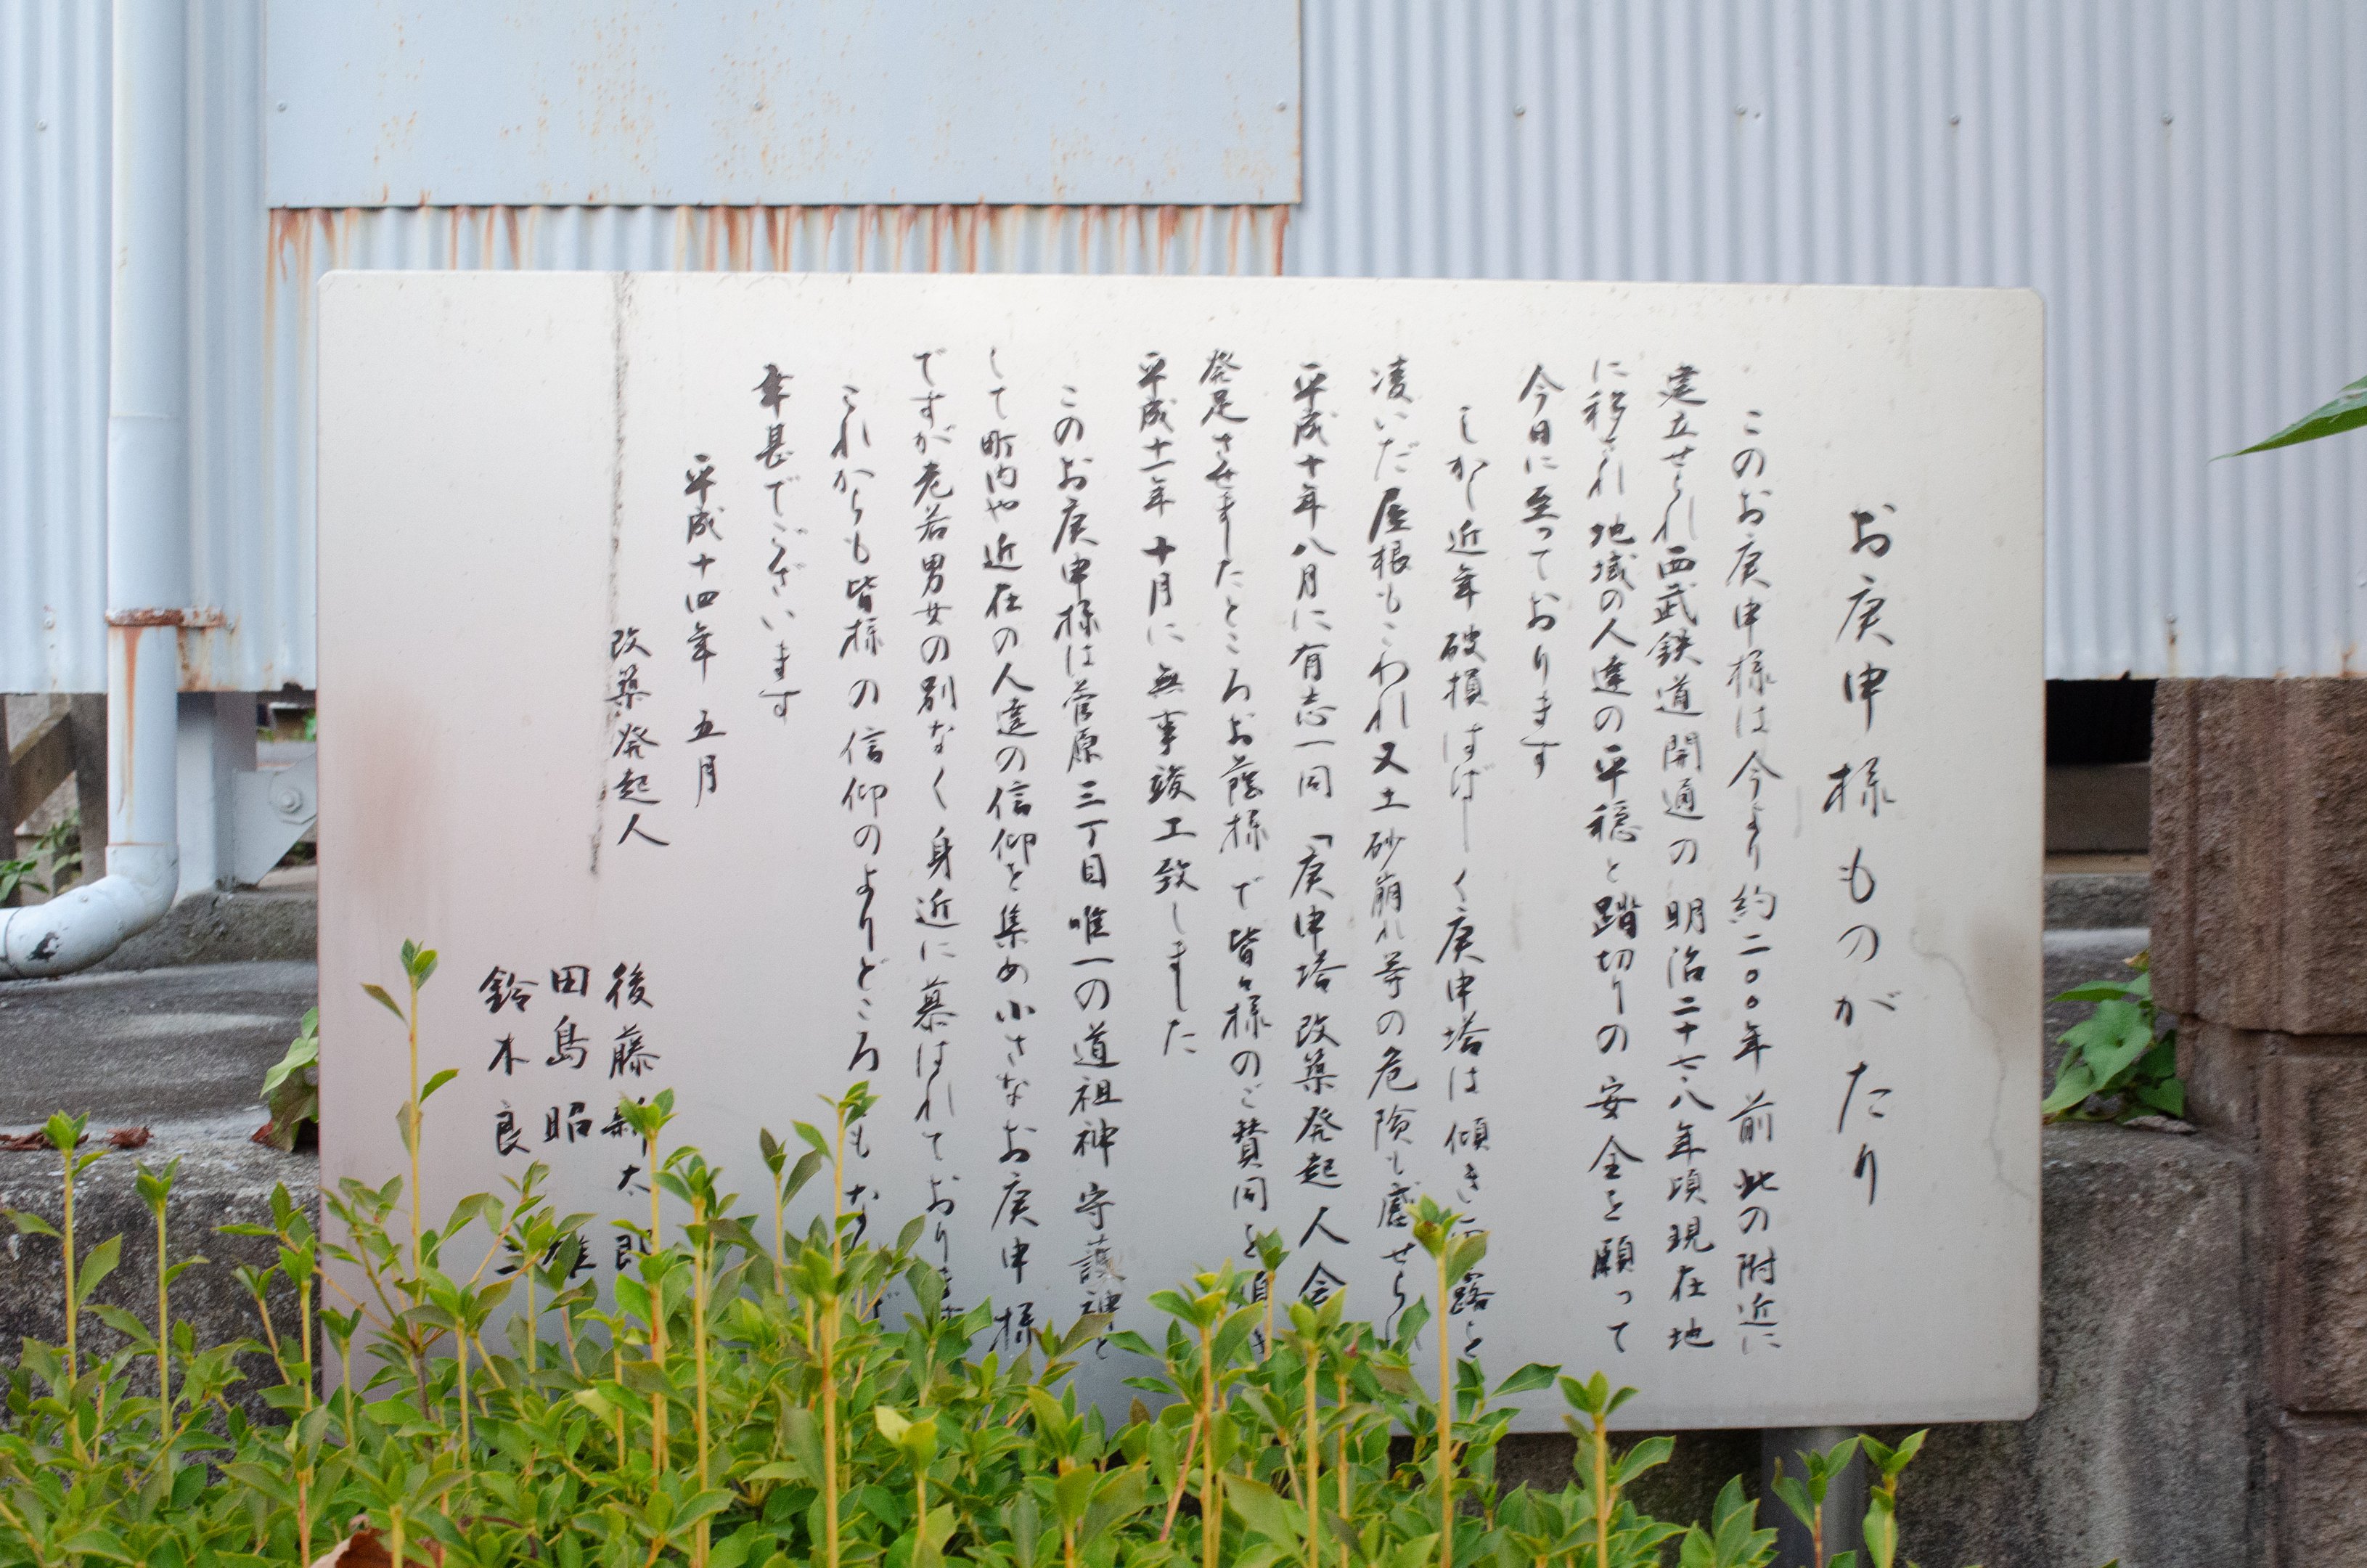 お庚申様ものがたり
このお庚申様は今より約二〇〇年前此の附近に
建立せられ西武鉄道開通の明治二十七、八年頃現在地
に移され地域の人達の平穏と踏切りの安全を願って
今日に至っております
しかし近年破損はげしく庚申塔は傾き雨露を
凌いだ屋根もこわれ又土砂崩れ等の危険も感ぜられ
平成十年八月に有志一同「庚申塔改築発起人会
発足させましたところお蔭様で皆々様のご賛同を頂き
平成十一年十月に無事竣工致しました
このお庚申様は菅原三丁目唯一の道祖神守護神と
して町内や近在の人達の信仰を集め小さなお庚申様
ですが老若男女の別なく身近に慕はれております
これからも皆様の信仰のよりどころともなれば
幸甚でございます
平成十四年 五月
改築発起人 後藤新太郎
田島昭雄
鈴木良